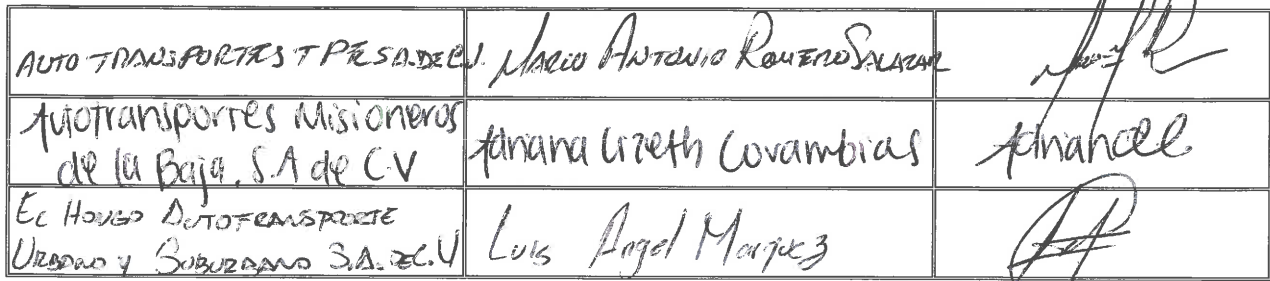 AUTO TRANSPORTES TPE S.A. DE C.V. Mario Antonio Romero Salazar
Autotransportes Misioneros
de la Baja. S.A de C.V
Adriana Lizeth Covarrubias
El Hongo Autotransporte
Urbano y Suburbano S.A. DE C.V
Luis Angel Marquez